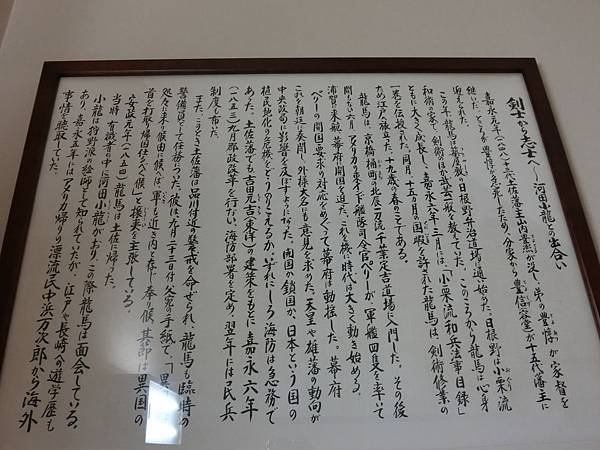 剣士から志士へ―河田小龍との出合い
嘉永元年(一八四八)六代土佐藩主山内豊熈が没し、弟の豊惇が家督を
継いだ。ところが、豊惇が急死したため、分家から豊信(容堂)が十五代藩主に
迎えられた。
この年、龍馬は築屋敷の日根野弁治道場へ通い始めた。日根野は小栗流
和術の名手で、剣術のほか武芸一般を教えていた。このころから龍馬は、心身
ともに大きく成長し、嘉永六年三月には、「小栗流和兵法事目録」
一巻を伝授された。同月、十五ヵ月の国暇を許された龍馬は、剣術修業の
ため江戸へ旅立った。十九歳の春のことである。
龍馬は、京橋桶町の北辰一刀流千葉定吉道場に入門した。その後
間もない六月、アメリカの東インド艦隊司令官ペリーが、軍艦四隻を率いて
浦賀へ来航し、幕府へ開国を迫った。これを機に時代は大きく動き始める。
ペリーの開国要求の対応をめぐって、幕府は動揺した。幕府
これを朝廷に奏聞し、外様大名にも意見を求めた。天皇や雄藩の動向が
中央政局に影響を及ぼすようになった。開国か鎖国か、日本という国の
植民地化の危機をどうのりこえるか、いずれにしろ海防は急務で
あった。土佐藩でも吉田元吉(東洋)の建策をもとに嘉永六年
(一八五三)九月郡政改革を行ない、海防部署を定め、翌年には民兵
制度も布いた。
またこのとき土佐藩は品川付近の警戒を命ぜられ、龍馬も臨時の
警備員として任務についた。彼は、九月二十三日付父宛の手紙で、「異
処々に来り候由に候へば、軍も近き内と存じ奉り候。其節は異国の
首を打取り帰国仕るべく候」と攘夷を主張している。
安政元年(一八五四)龍馬は土佐に帰った。
当時、有識者の中に河田小龍がおり、この際龍馬は面会している。
小龍は狩野派の絵師として知られていたが、江戸や長崎への遊学歴も
あり、嘉永五年にはアメリカ帰りの漂流民中浜万次郎から海外
事情を聴取していた。